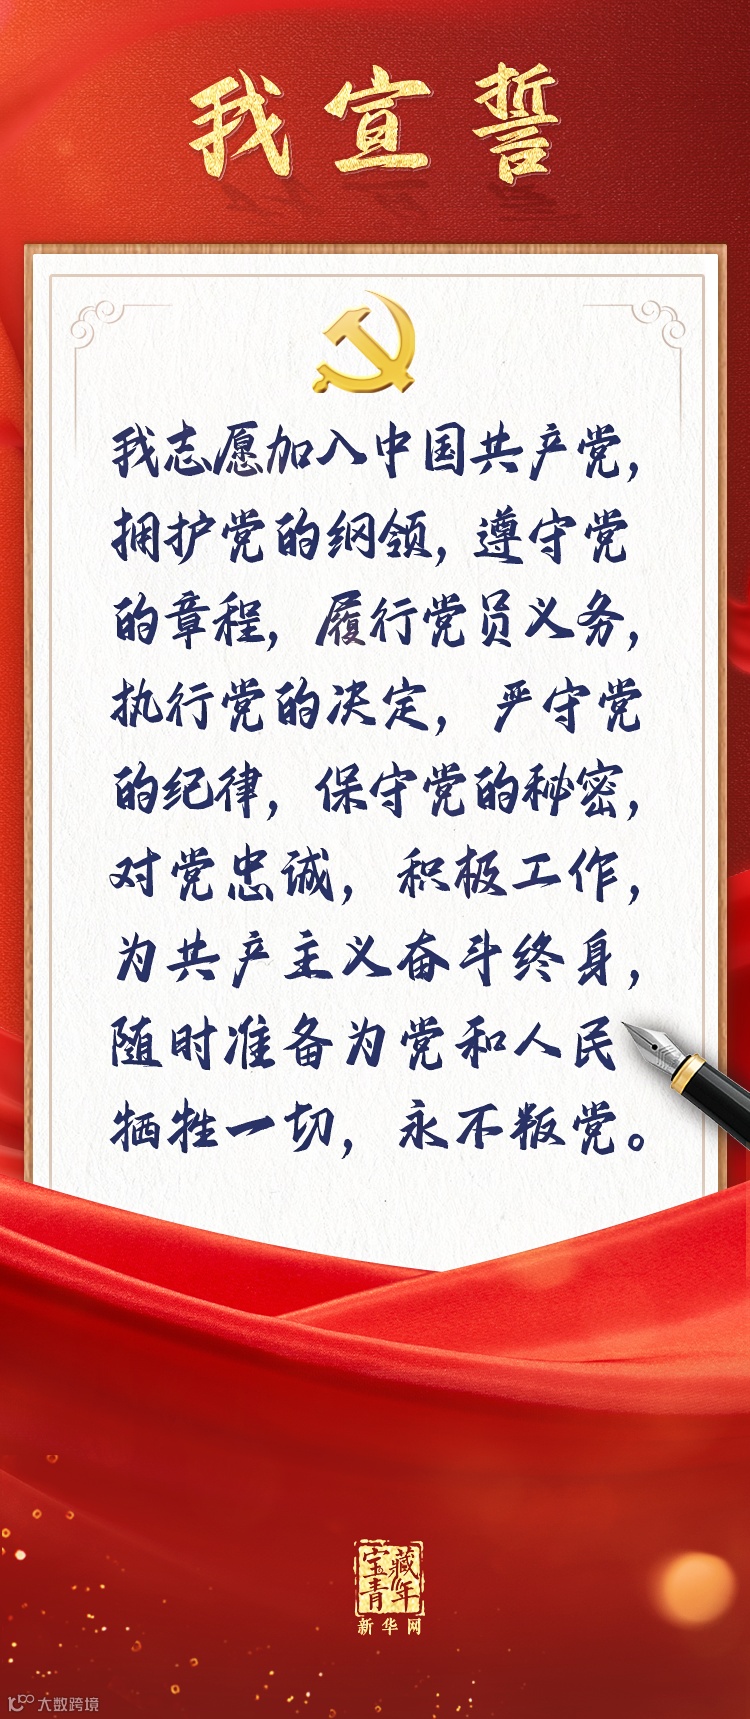 我宣誓
我志愿加入中国共产党，
拥护党的纲领，遵守党
的章程，履行党员义务，
执行党的决定，严守党
的纪律，保守党的秘密，
对党忠诚，积极工作，
为共产主义奋斗终身，
随时准备为党和人民
牺牲一切，永不叛党。
宝藏
青年
新华网
大数跨境